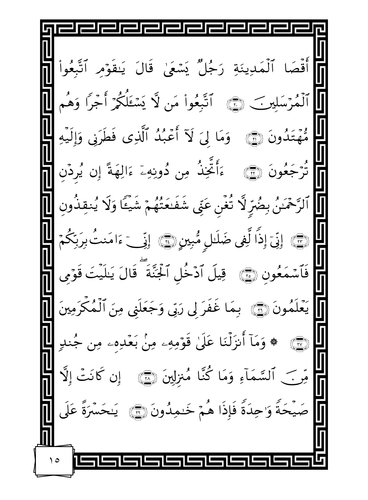 أَقْصَا ٱلْمَدِينَةِ رَجُلٌ يَسْعَىٰ قَالَ يَٰقَوْمِ ٱتَّبِعُوا۟
ٱلْمُرْسَلِينَ ﴿٢٠﴾ ٱتَّبِعُوا۟ مَن لَّا يَسْـَٔلُكُمْ أَجْرًا وَهُم
مُّهْتَدُونَ ﴿٢١﴾ وَمَا لِىَ لَآ أَعْبُدُ ٱلَّذِى فَطَرَنِى وَإِلَيْهِ
تُرْجَعُونَ ﴿٢٢﴾ ءَأَتَّخِذُ مِن دُونِهِۦٓ ءَالِهَةً إِن يُرِدْنِ
ٱلرَّحْمَٰنُ بِضُرٍّ لَّا تُغْنِ عَنِّى شَفَٰعَتُهُمْ شَيْـًٔا وَلَا يُنقِذُونِ
﴿٢٣﴾ إِنِّىٓ إِذًا لَّفِى ضَلَٰلٍ مُّبِينٍ ﴿٢٤﴾ إِنِّىٓ ءَامَنتُ بِرَبِّكُمْ
فَٱسْمَعُونِ ﴿٢٥﴾ قِيلَ ٱدْخُلِ ٱلْجَنَّةَ ۖ قَالَ يَٰلَيْتَ قَوْمِى
يَعْلَمُونَ ﴿٢٦﴾ بِمَا غَفَرَ لِى رَبِّى وَجَعَلَنِى مِنَ ٱلْمُكْرَمِينَ
﴿٢٧﴾ ۞ وَمَآ أَنزَلْنَا عَلَىٰ قَوْمِهِۦ مِنۢ بَعْدِهِۦ مِن جُندٍ
مِّنَ ٱلسَّمَآءِ وَمَا كُنَّا مُنزِلِينَ ﴿٢٨﴾ إِن كَانَتْ إِلَّا
صَيْحَةً وَٰحِدَةً فَإِذَا هُمْ خَٰمِدُونَ ﴿٢٩﴾ يَٰحَسْرَةً عَلَى
١٥